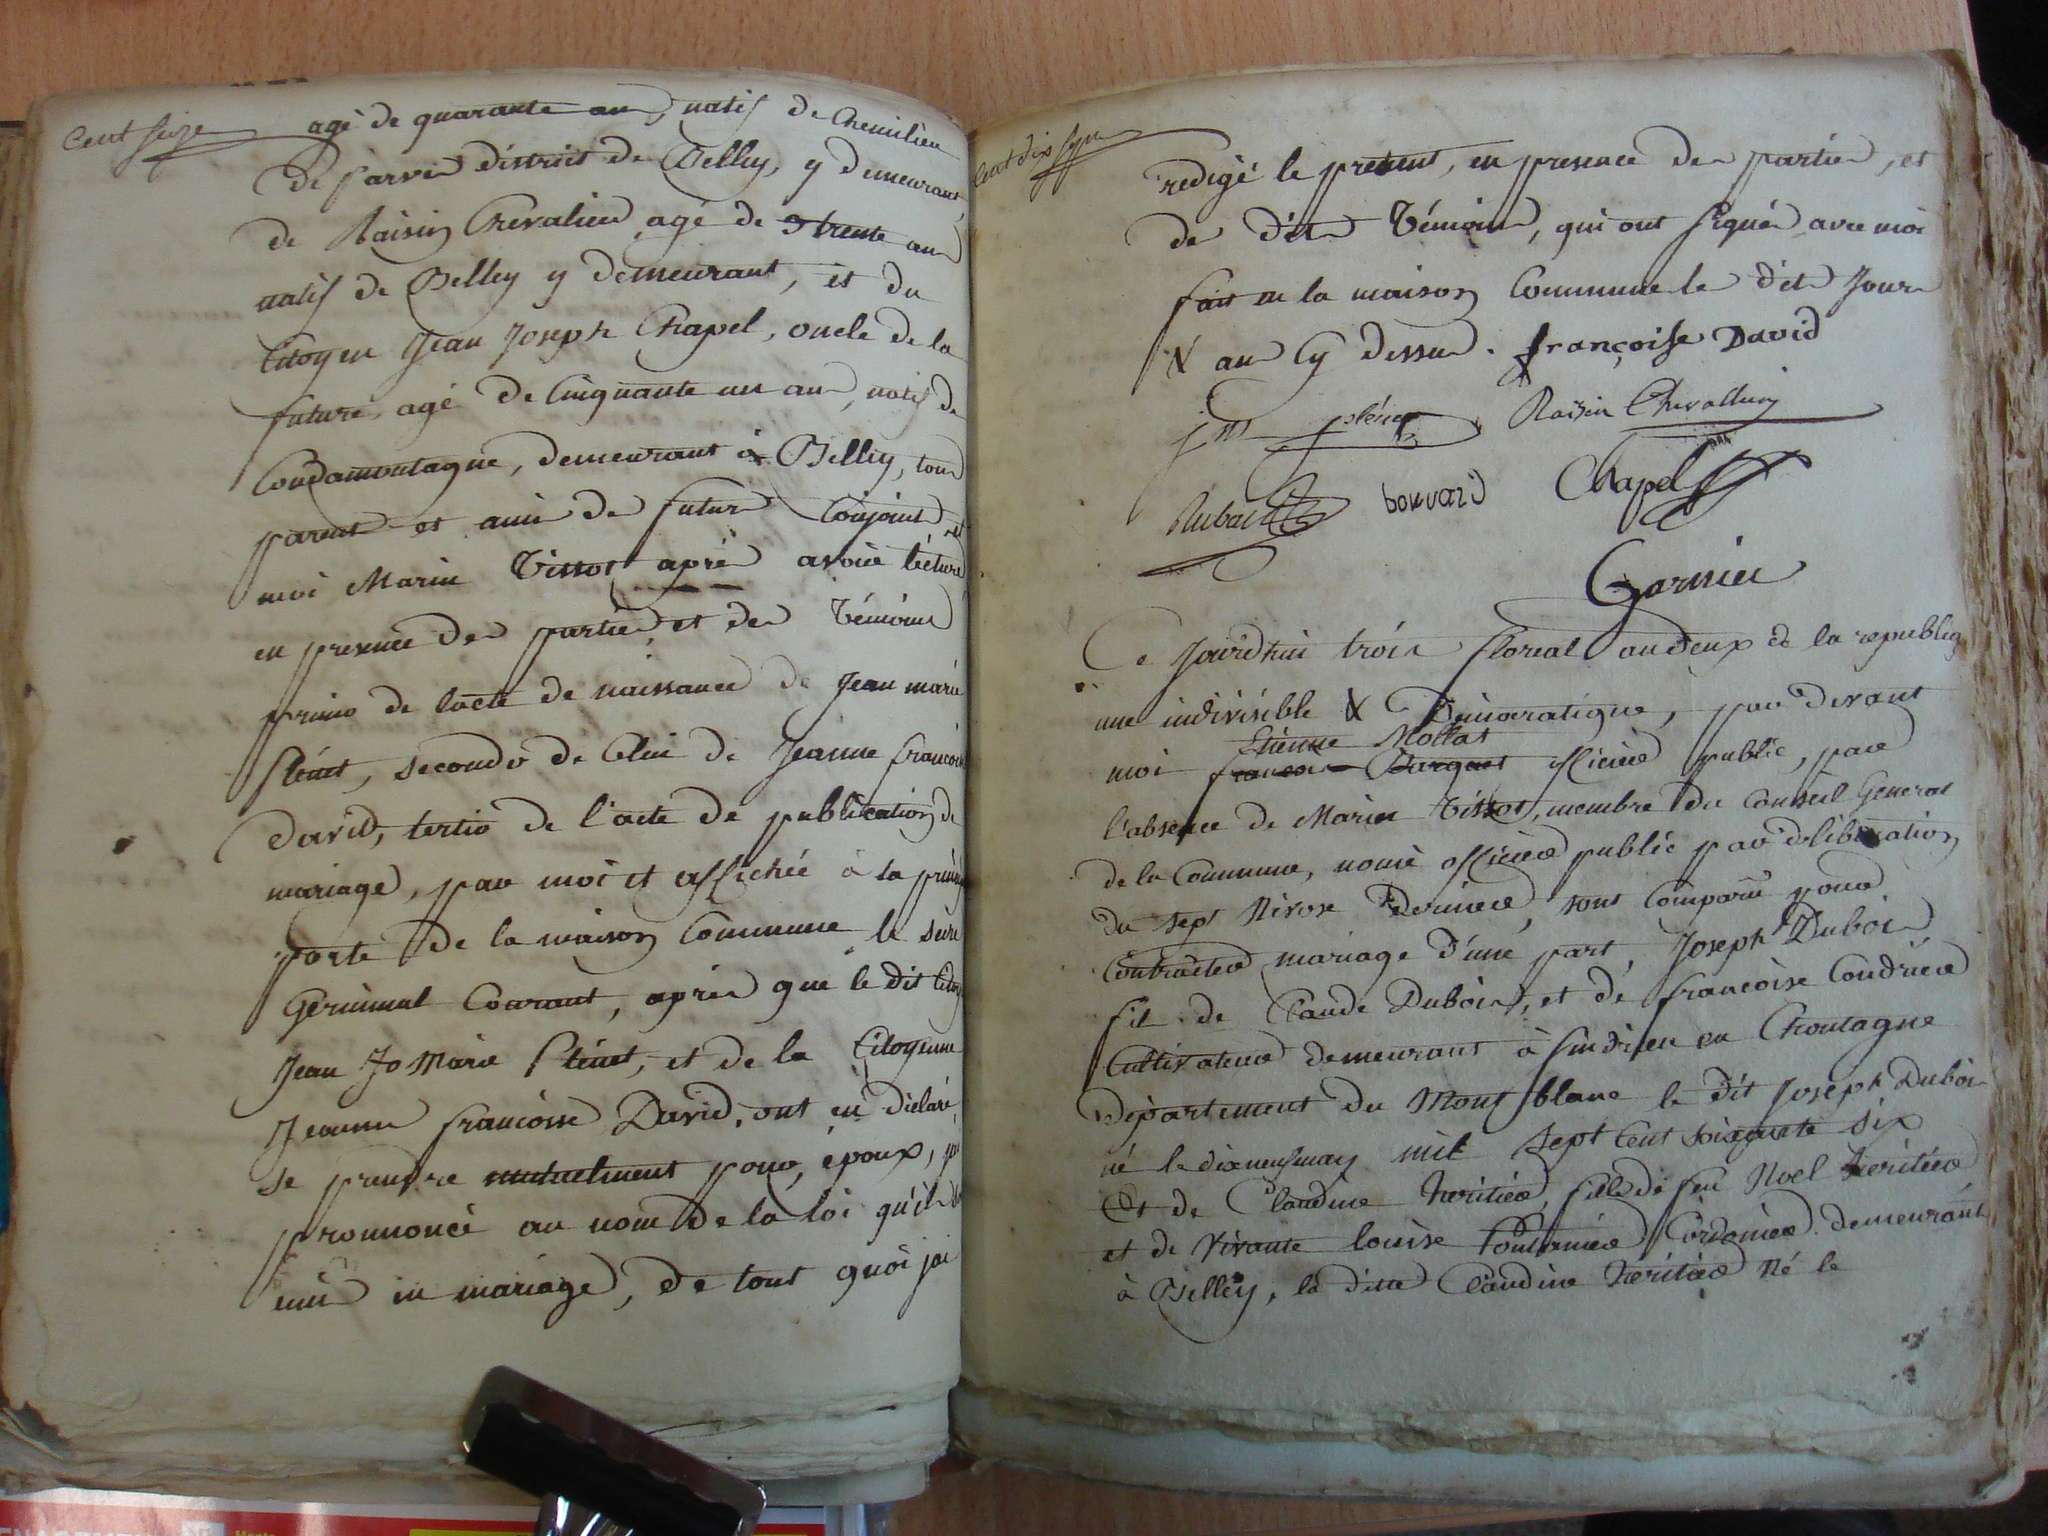 Cent seize
agé de quarante ans, natif de Chemilieu
de parves district de Belley, y demeurant,
de Raisin Chevalier agé de trente ans
natif de Belley y demeurant, et du
Citoyen Jean Joseph Chapel, oncle de la
future, agé de Cinquante un ans, natif de
Condamontagne, demeurant à Belley, tous
parents et amis de futurs Conjoints, et
moi Marin Tissot après avoire lécture
en presence des parties et des Témoins
primo de lacte de naissance de Jean marie
secondo de Celui de Jeanne francoise
David, tertio de l'acte de publication de
mariage, par moi et affichée à la
porte de la maison Commune le
Germinal Courant, après que le dit
Jean Jo Marie et de la Citoyenne
Jeanne francoise David, ont eu déclaré
se prendre mutuelment pour époux, j'ai
pronnoncé au nom de la loi qu'ils
unis en mariage, de tout quoi jai
Cent dix sept
redigé le present, en presence des parties, et
des dits Témoins, qui ont signés avec moi
fait en la maison Commune le dits Jour
& an Cy dessus. françoise David
Raisin Chevallier
bouvard Chapel
Garnier
Ce Jourdhui trois floreal an deux de la republiq
une indivisible & Démocratique, par devant
Etienne Mollat
moi francois officiée public, par
l'absence de Marin Tissot, membre du Conseil General
de la Commune, nomé officiée public par deliberation
du sept Nivose dernier, sont Comparus pour
Contracter mariage d'une part, Joseph Dubois
fils de Claude Dubois, et de francoise
Cultivateur demeurant à en Choutagne
Département du Mont blanc le dit Joseph Dubois
né le dixneuf may mil sept Cent soixante six
Et de Claudine heritier, fille de feu Noel heritier
et de vivante louise demeurant
à Belley, la ditte Claudine heritier Né le